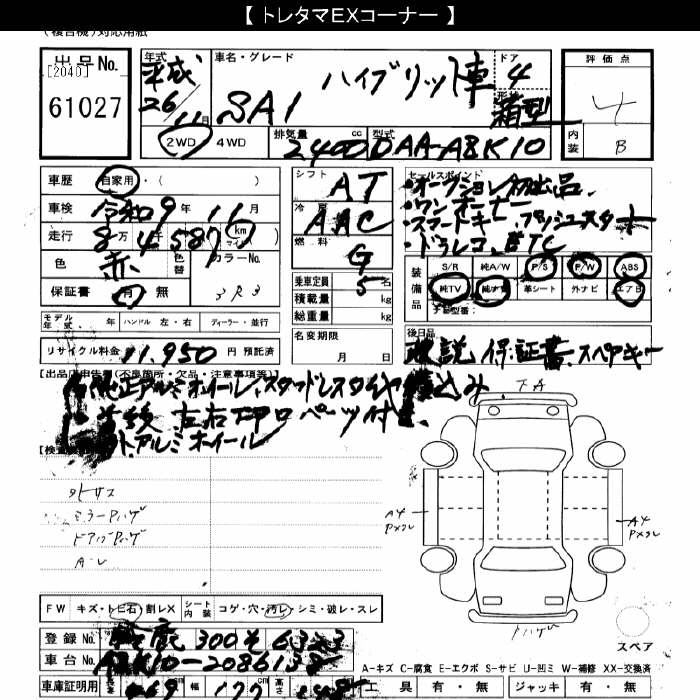 【 トレタマEXコーナー 】
(複合機)対応用紙
出品No.
[2040]
61027
年式
平成
26
11月
車名・グレード
SAI
ハイブリッド車
ドア
4
形状
箱型
2WD 4WD
排気量
2400
cc
型式
DAA-AZK10
評価点
4
内装
B
車歴
自家用・( )
車検
令和9年11月
走行
8万4587
km
マイル
色
赤
色替
カラーNo.
3R3
保証書
有・無
シフト
AT
冷房
AAC
燃料
G
乗車定員
5名
積載量
kg
総重量
kg
名変期限
月 日
セールスポイント
・オークション初出品、
・ワンオーナー
・スマートキー、プッシュスタート
・ドラレコ、ETC
装備品
S/R 純A/W P/S P/W ABS
純TV 純ナビ 革シート 外ナビ エアB
ナビ型番:
モデル年式 年 ハンドル 左・右 ディーラー・並行
リサイクル料金 11,950 円 預託済
後日品
取説 保証書、スペアキー
【出品店申告欄(不良箇所・欠品・注意事項等)】
純正アルミホイール、スタッドレスタイヤ積込み
左右
アルミホイール
【検査
ミラーPハゲ
ドアエッジハゲ
A-L
FA
A4
Pメクレ
A4
Pメクレ
スペア
FW キズ・トビ石・割レX
シート内装 コゲ・穴・汚レ・シミ・破レ・スレ
登録No.
300 そ 6323
車台No.
AZK10-2086138
車庫証明用
469
幅
177
cm
高さ
A-キズ C-腐食 E-エクボ S-サビ U-凹ミ W-補修 XX-交換済
工具 有・無 ジャッキ 有・無